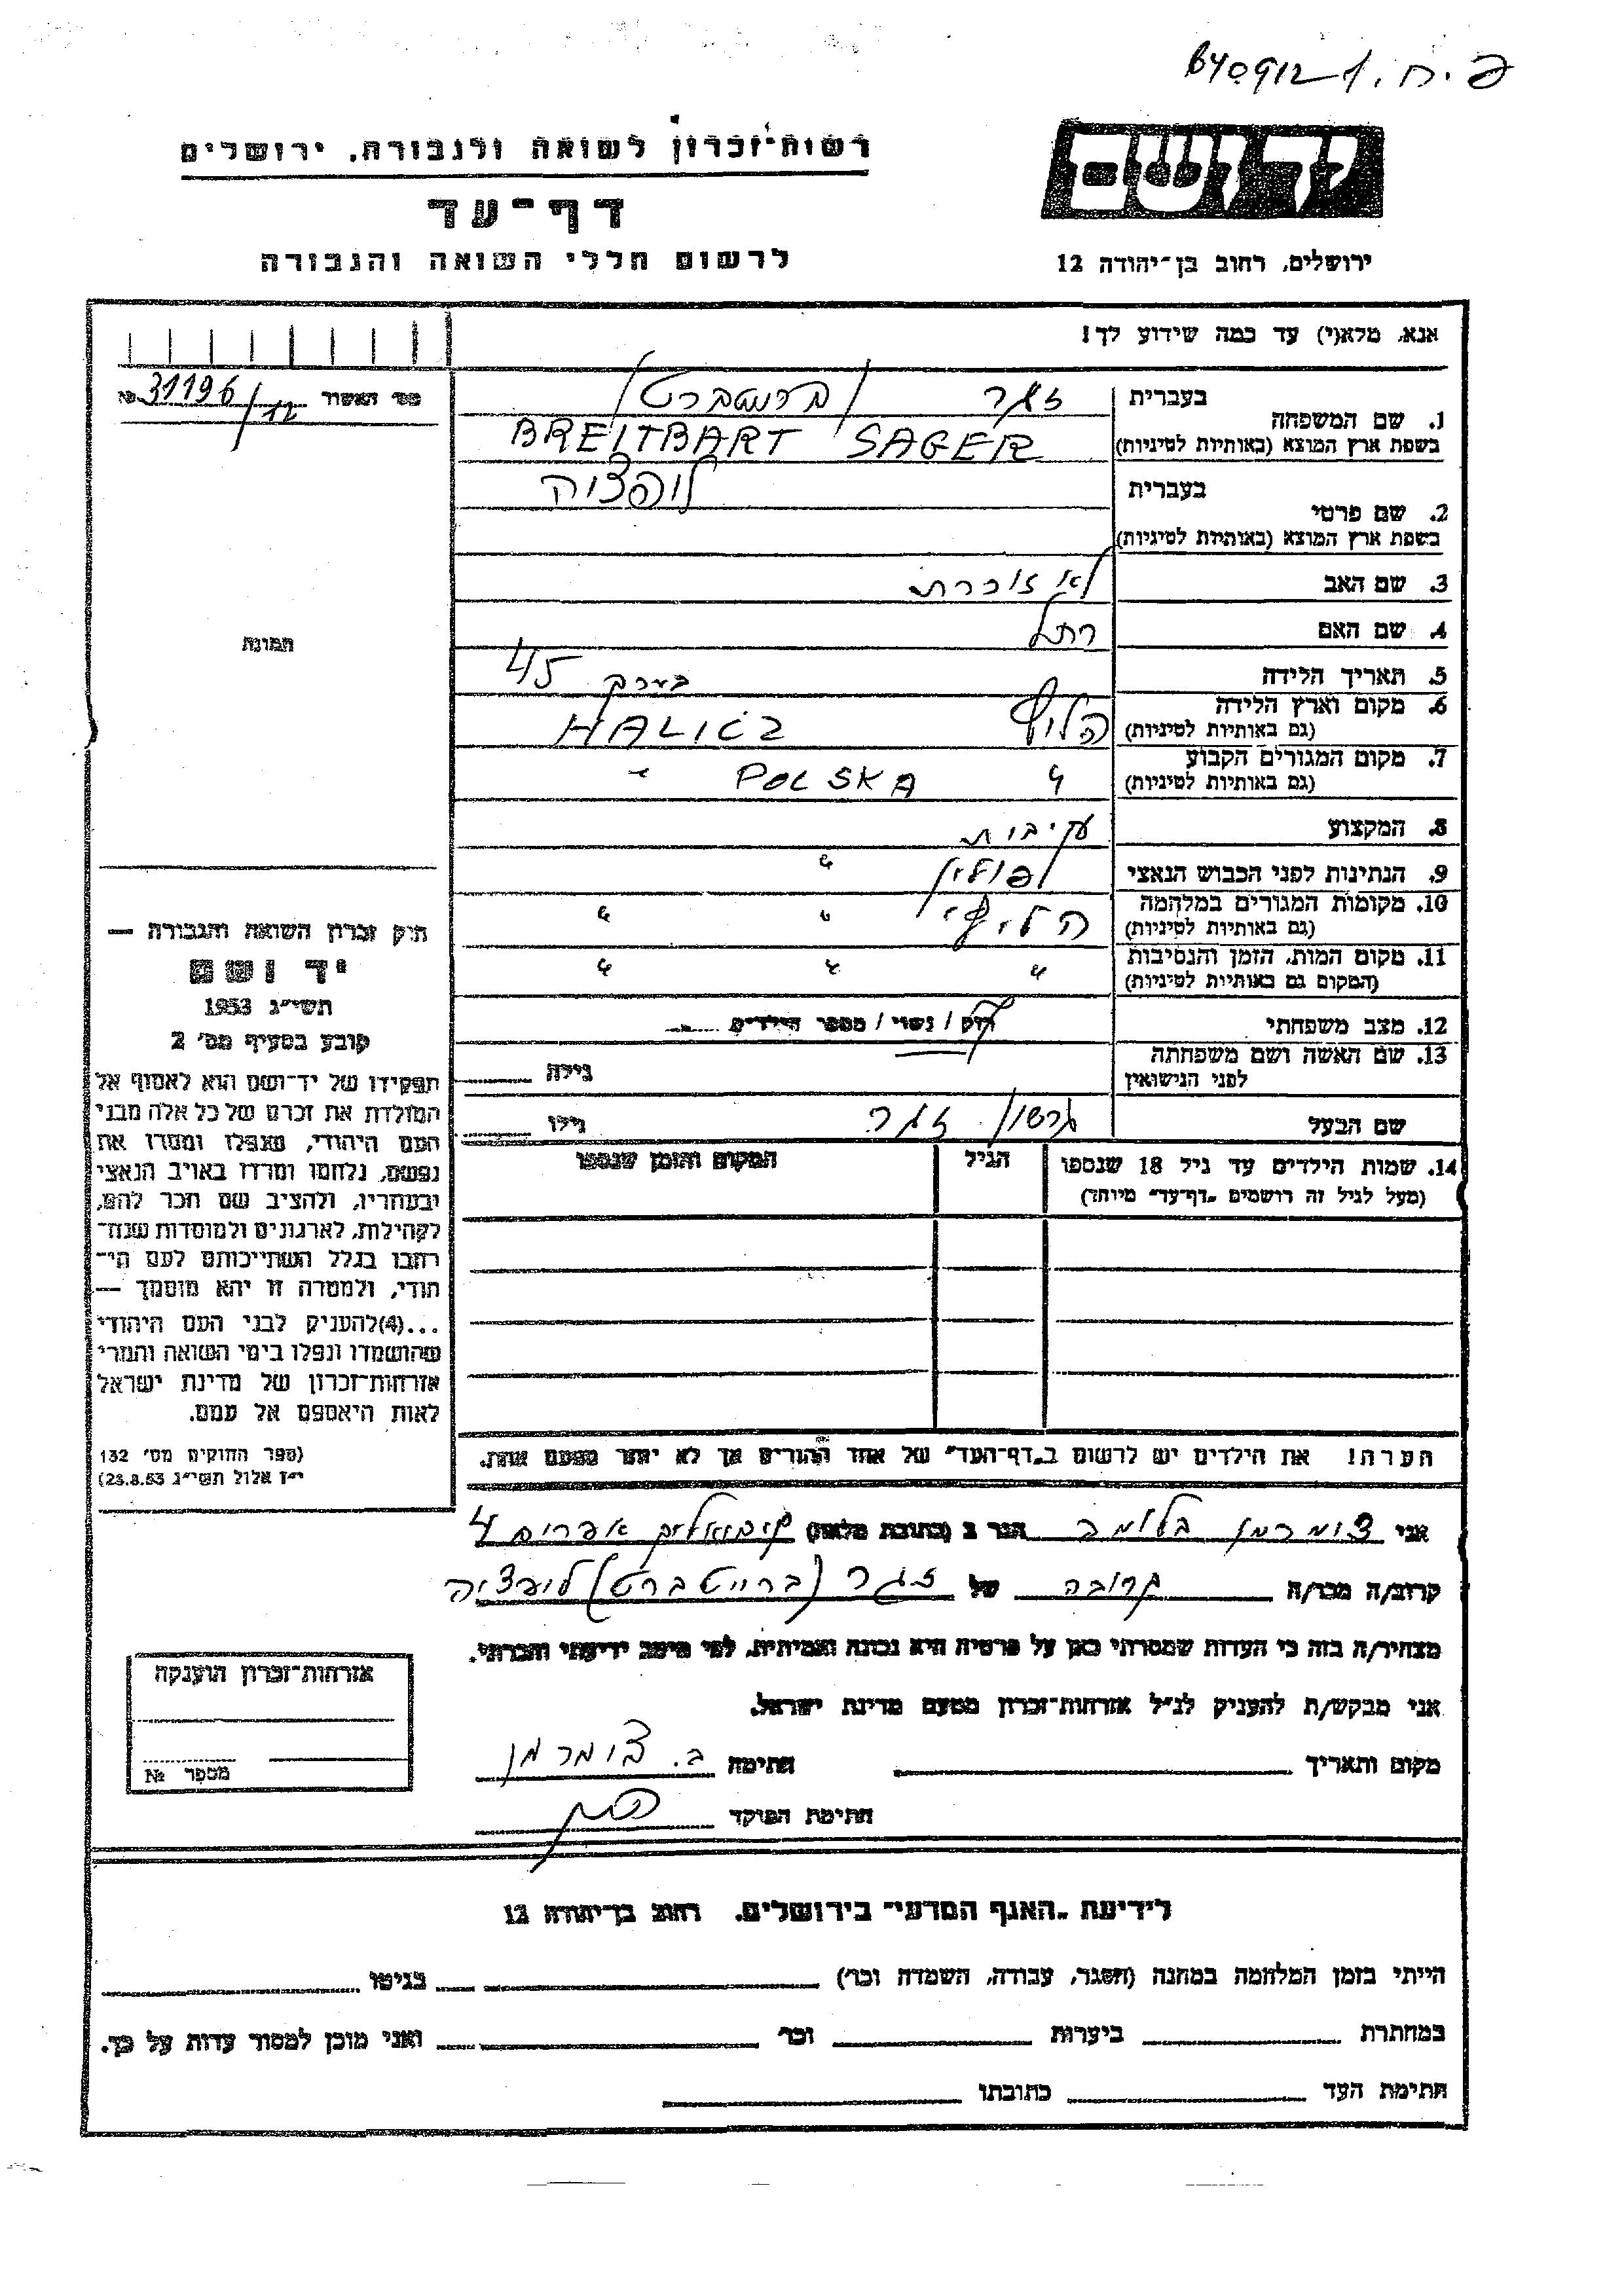 רשות-זכרון לשואה ולגבורה, ירושלים
דף-עד
לרשום חללי השואה והגבורה
ירושלים, רחוב בן-יהודה 12
אנא, מלא(י) עד כמה שידוע לך!
מס׳ האשור 31196/12 №
1. שם המשפחה
בעברית זגר (ברייטברט)
בשפת ארץ המוצא (באותיות לטיניות) BREITBART SAGER
2. שם פרטי
בעברית
בשפת ארץ המוצא (באותיות לטיניות)
3. שם האב לא זוכרת
4. שם האם רחל
5. תאריך הלידה בערך 45
6. מקום וארץ הלידה HALICZ
(גם באותיות לטיניות)
7. מקום המגורים הקבוע " POLSKA "
(גם באותיות לטיניות)
8. המקצוע עקיבות
9. הנתינות לפני הכבוש הנאצי פולין "
10. מקומות המגורים במלחמה " "
(גם באותיות לטיניות)
11. מקום המות, הזמן והנסיבות " " "
(המקום גם באותיות לטיניות)
12. מצב משפחתי רוק / נשוי / מספר הילדים
13. שם האשה ושם משפחתה
לפני הנישואין גילה
שם הבעל גרשון זגר גילו
14. שמות הילדים עד גיל 18 שנספו הגיל המקום והזמן שנספו
(מעל לגיל זה רושמים "דף-עד" מיוחד)
הערה! את הילדים יש לרשום ב"דף-העד" של אחד ההורים אך לא יותר מפעם אחת.
תמונה
חוק זכרון השואה והגבורה —
יד ושם
תשי״ג 1953
קובע בסעיף מס׳ 2
תפקידו של יד-ושם הוא לאסוף אל
המולדת את זכרם של כל אלה מבני
העם היהודי, שנפלו ומסרו את
נפשם, נלחמו ומרדו באויב הנאצי
ובעוזריו, ולהציב שם וזכר להם,
לקהילות, לארגונים ולמוסדות שנח-
רבו בגלל השתייכותם לעם הי-
הודי, ולמטרה זו יהא מוסמך —
...(4)להעניק לבני העם היהודי
שהושמדו ונפלו בימי השואה והמרי
אזרחות-זכרון של מדינת ישראל
לאות היאספם אל עמם.
(ספר החוקים מס׳ 132
י״ז אלול תשי״ג 28.8.53)
אני צימרמן בלומה הגר ב (כתובת מלאה) אפרים 4
קרוב/ה מכר/ה קרובה של זגר (ברייטברט)
מצהיר/ה בזה כי העדות שמסרתי כאן על פרטיה היא נכונה ואמיתית, לפי מיטב ידיעתי והכרתי.
אני מבקש/ת להעניק לנ״ל אזרחות-זכרון מטעם מדינת ישראל.
מקום ותאריך חתימה ב. צימרמן
חתימת הפוקד
אזרחות-זכרון הוענקה
מספר №
לידיעת "האגף המדעי" בירושלים, רחוב בן-יהודה 12
הייתי בזמן המלחמה במחנה (הסגר, עבודה, השמדה וכו׳) בגיטו
במחתרת ביערות וכו׳ ואני מוכן למסור עדות על כך.
חתימת העד כתובתו